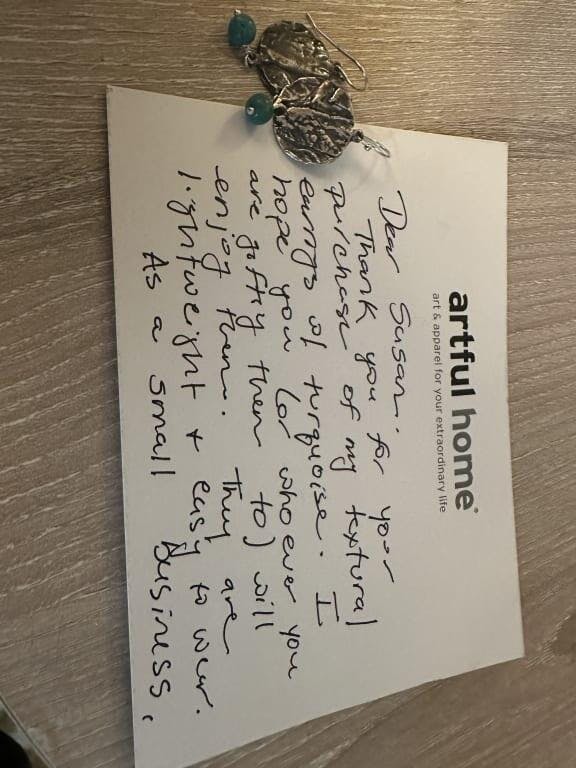 artful home®
art & apparel for your extraordinary life
Dear Susan.
Thank you for your
purchase of my textural
earrings w/ turquoise. I
hope you (or whoever you
are gifting them to) will
enjoy them. They are
lightweight + easy to wear.
As a small business,